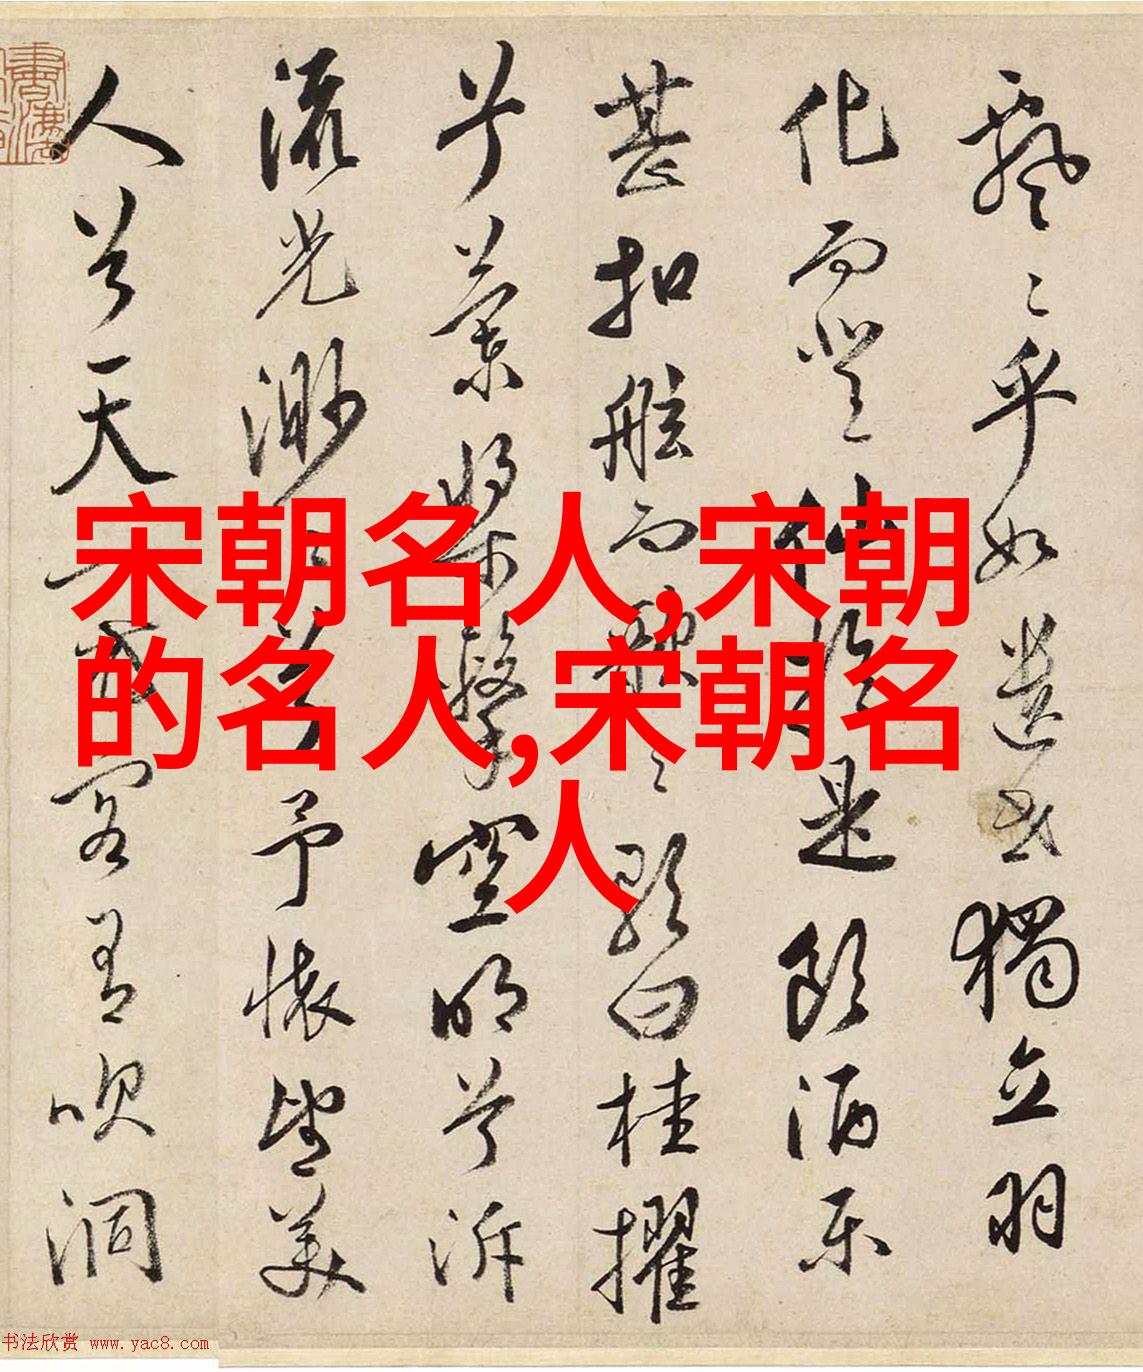 飘々乎如遗世独立羽
化而登仙於是饮酒乐
甚扣舷而歌之歌曰桂擢
兮兰桨击空明兮泝
流光渺々兮予怀望美
人兮天一方客有吹洞
宋朝名人,宋朝
的名人,宋朝名
人
书法欣赏 www.yac8.com